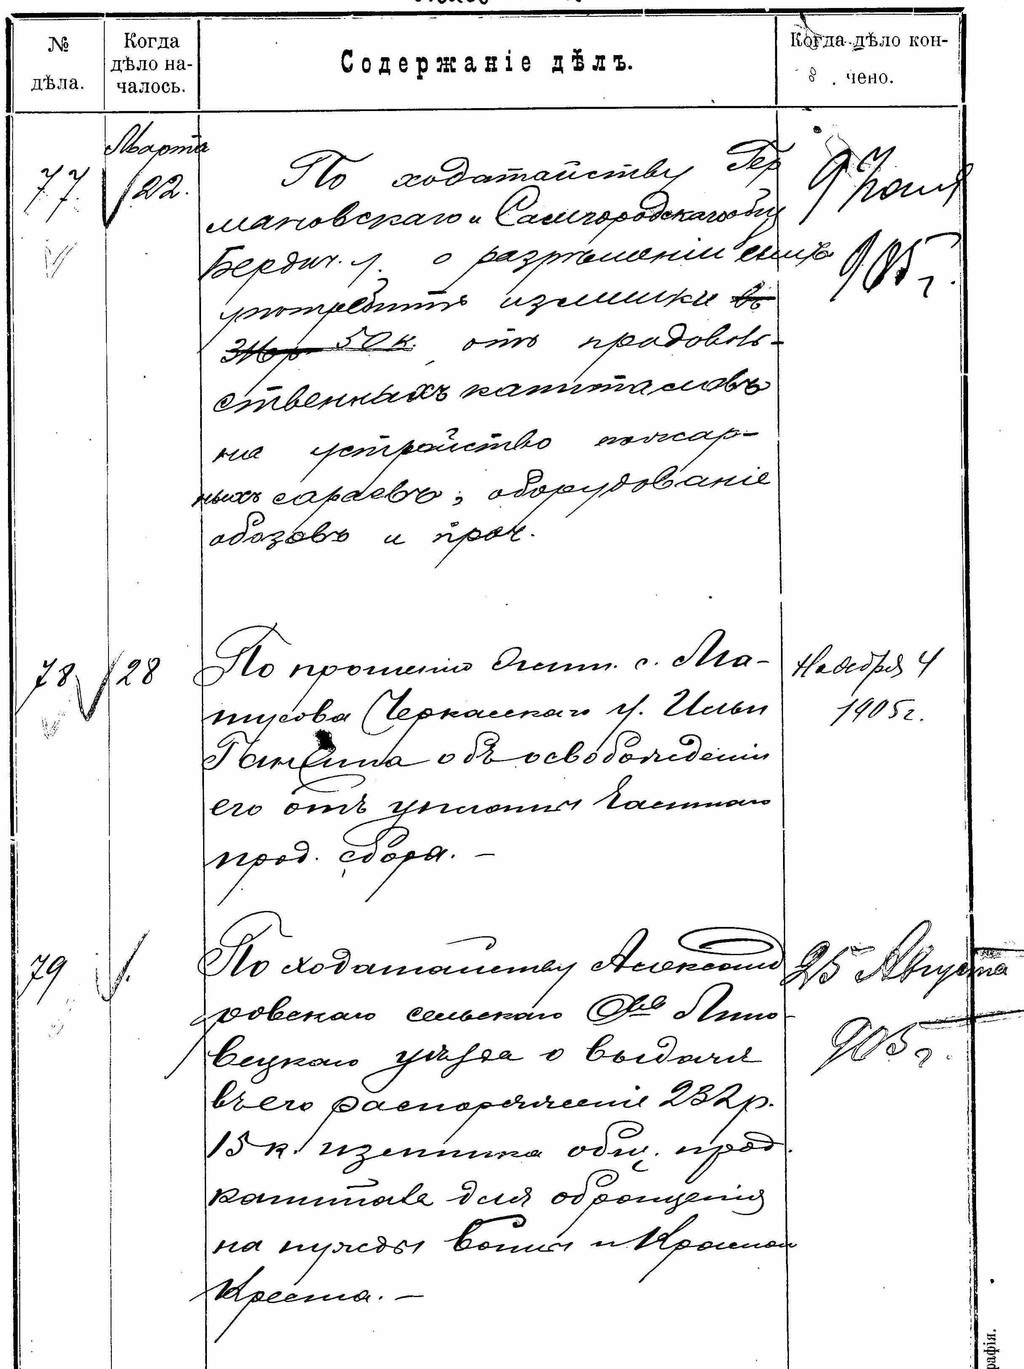 № дѣла.
Когда дѣло на-
чалось.
Содержаніе дѣлъ.
Когда дѣло кон-
чено.
Марта
77. 22.
По ходатайству Гер
мановскаго и Самгородскаго общ
Бердич. у. о разрѣшеніи имъ
употребить излишки въ
50 к. отъ продоволь-
ственныхъ капиталовъ
на устройство пожар-
ныхъ сараевъ, оборудованіе
обозовъ и проч.
9 Іюля
905 г.
78 28
По прошенію с. Ма-
тусова Черкасскаго у. Ильи
объ освобожденіи
его отъ уплаты частнаго
прод. сбора. –
Ноября 4
1905 г.
79
По ходатайству Александ
ровскаго сельскаго О-ва Липо-
вецкаго уѣзда о выдачѣ
въ его распоряженіе 232 р.
15 к. излишка общ. прод.
капитала для обращенія
на нужды войны и Краснаго
Креста. –
25 Августа
905 г.
рафія.